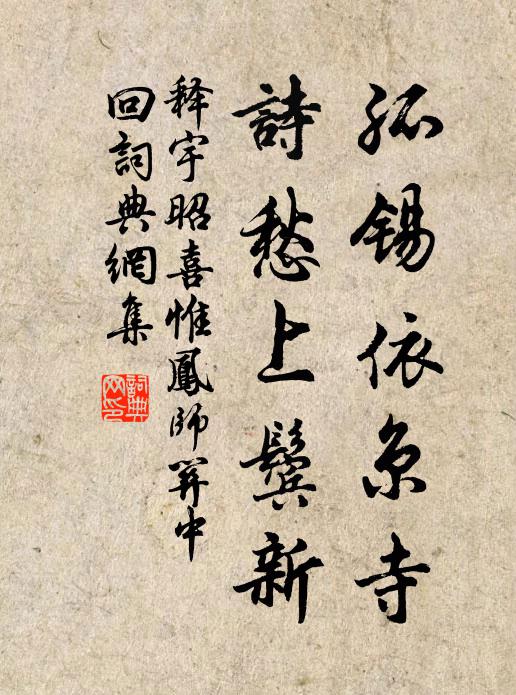 孤锡依京寺
詩愁上鬓新
释宇昭喜惟鳳師関中
回詞典網集
詞典网印